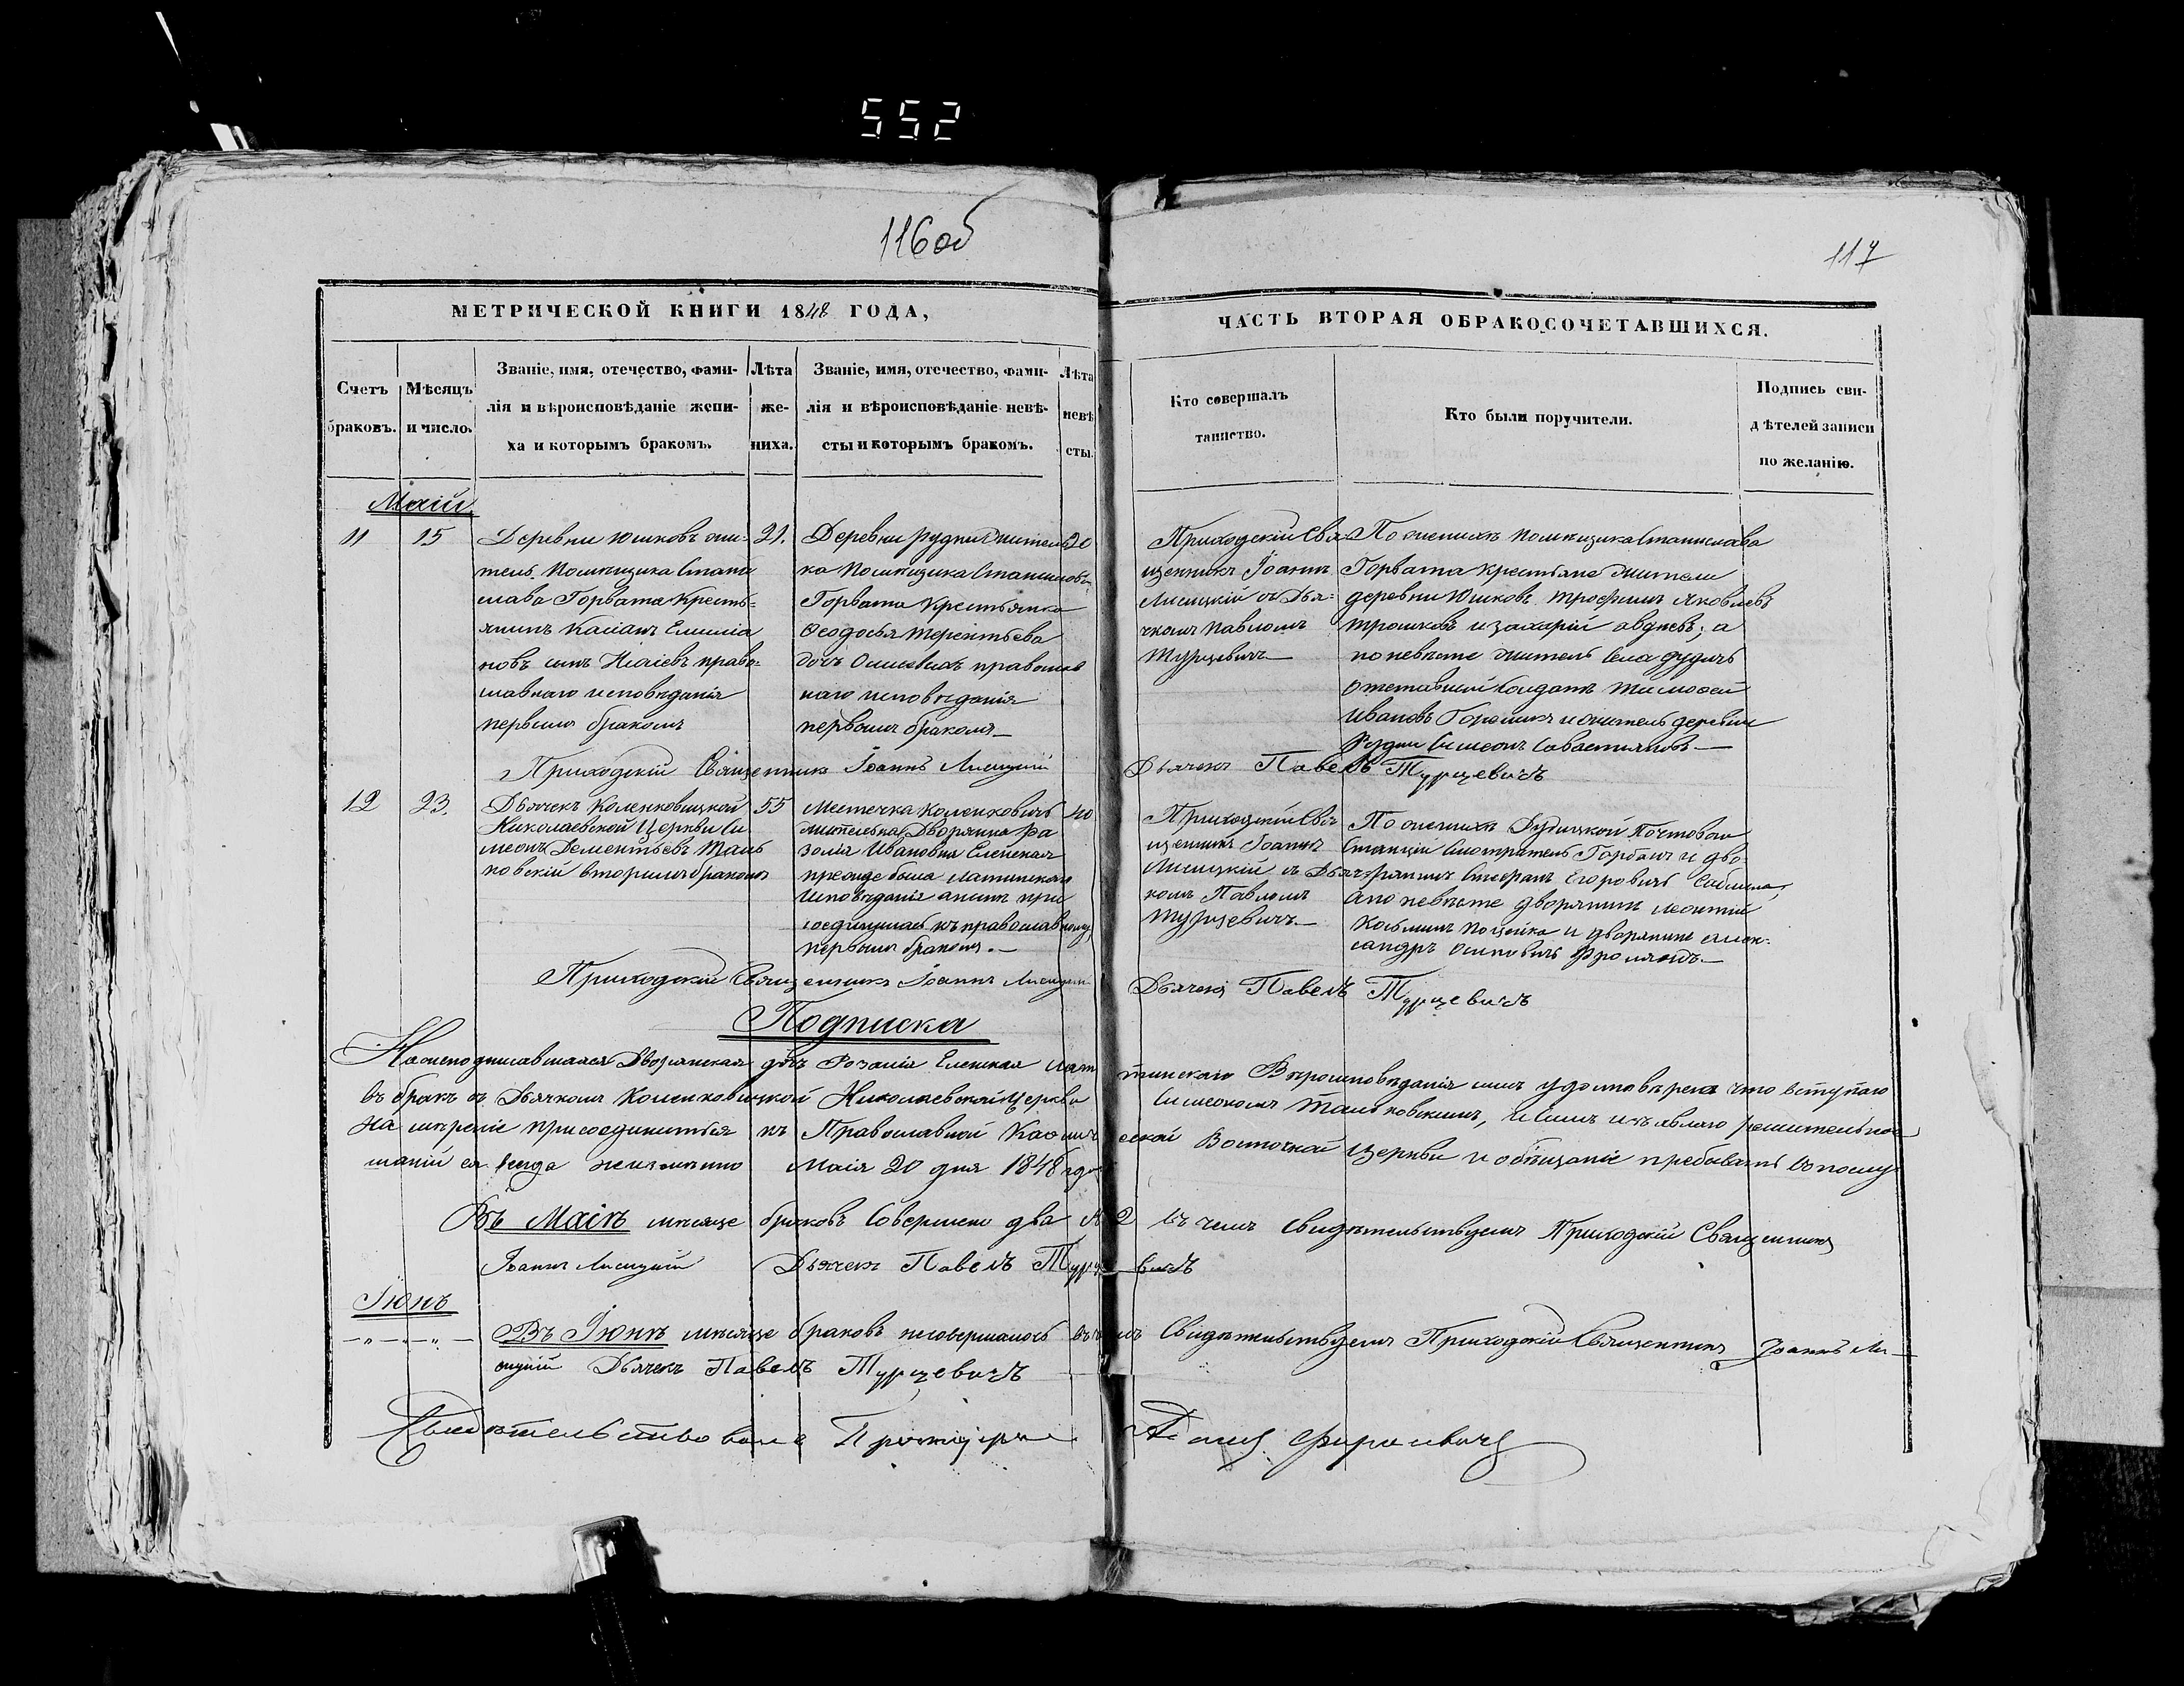 552
116 об
117
МЕТРИЧЕСКОЙ КНИГИ 1848 ГОДА,
ЧАСТЬ ВТОРАЯ О БРАКОСОЧЕТАВШИХСЯ.
Счетъ
браковъ.
Мѣсяцъ
и число.
Званіе, имя, отечество, фами-
лія и вѣроисповѣданіе жени-
ха и которымъ бракомъ.
Лѣта
же-
ниха.
Званіе, имя, отечество, фами-
лія и вѣроисповѣданіе невѣ-
сты и которымъ бракомъ.
Лѣта
невѣ
сты.
Кто совершалъ
таинство.
Кто были поручители.
Подпись сви-
дѣтелей записи
по желанію.
Маій
11
15
Деревни Юшковъ жи-
тель Помѣщика Стани
слава Горвата Кресть-
янинъ
новъ сынъ право-
славнаго исповѣданія
первымъ бракомъ
21.
Деревни Рудни жителъ
ка Помѣщика Станислава
Горвата Крестьянка
Ѳеодосья Терентьева
дочь православ
наго исповѣданія
первымъ бракомъ
20
Приходскій Свя-
щенникъ Іоаннъ
Лисицкій съ Дья-
чкомъ Павломъ
Турцевичъ
По женихѣ Помѣщика Станислава
Горвата крестьяне жители
деревни Юшковъ Трофимъ Яковлевъ
Трошковъ и Захарій Авдѣевъ; а
по невѣсте житель Села Дудичъ
отставный Солдатъ Тимоѳей
Ивановъ и житель деревни
Рудни Симеонъ Савастьяновъ
Приходскій Священникъ Іоаннъ Лисицкій
Дьячекъ Павелъ Турцевичъ
12
23.
Дьячекъ Коленковицкой
Николаевской Церкви Си
меонъ Дементьевъ Таль
ковскій вторымъ бракомъ
55
Местечка Коленковичъ
жителька Дворянка Ро
залія Ивановна Еленская
прежде была Латинскаго
Исповѣданія а нынѣ при
соединилась къ православному
первымъ бракомъ.
40
Приходскій Свя
щенникъ Іоаннъ
Лисицкій съ Дья
комъ Павломъ
Турцевичъ.
По женихѣ Дудицкой Почтовой
Станціи Смотритель Горбачъ и дво-
рянинъ Стефанъ Егоровичъ
А по невѣсте дворянинъ Леонтій
и дворянинъ Алек-
сандръ Осиповичъ
Приходскій Священникъ Іоаннъ Лисицкій
Дьячекъ Павелъ Турцевичъ
Подписка
Нижеподписавшаяся Дворянская дочь Розалія Еленская Латинскаго Вѣроисповѣданія симъ удостовѣряю что вступаю
въ бракъ съ Дьячкомъ Коленковицкой Николаевской Церкви Симеономъ Тальковскимъ, и Симъ изъявляю решительное
намѣреніе присоединиться къ Православной Каѳолической Восточной Церкви и обѣщаніе пребывать въ послу
шаніи ея всегда неизмѣнно Маія 20 дня 1848 года
Въ Маіѣ мѣсяце браковъ Совершено два № 2 въ чемъ свидѣтельствуемъ Приходскій Священникъ
Іоаннъ Лисицкій Дьячекъ Павелъ Турцевичъ
Іюнь
Въ Іюнѣ мѣсяце браковъ несовершалось въ чемъ Свидѣтельствуемъ Приходскій Священникъ Іоаннъ Ли-
сицкій Дьячекъ Павелъ Турцевичъ
Свидѣтельствовалъ Протоіерей